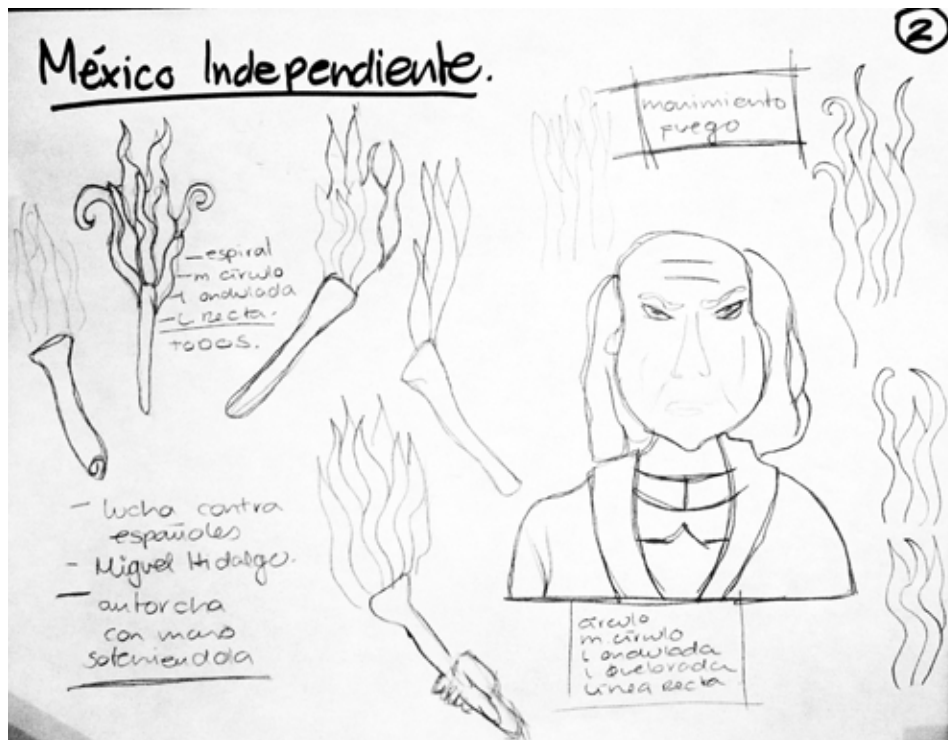 México Independiente.
2
movimiento
fuego
– espiral
– m círculo
– l ondulada
– L recta.
TODOS.
– lucha contra
españoles
– Miguel Hidalgo.
– antorcha
con mano
sosteniendola
círculo
m. círculo
L ondulada
L quebrada
línea recta